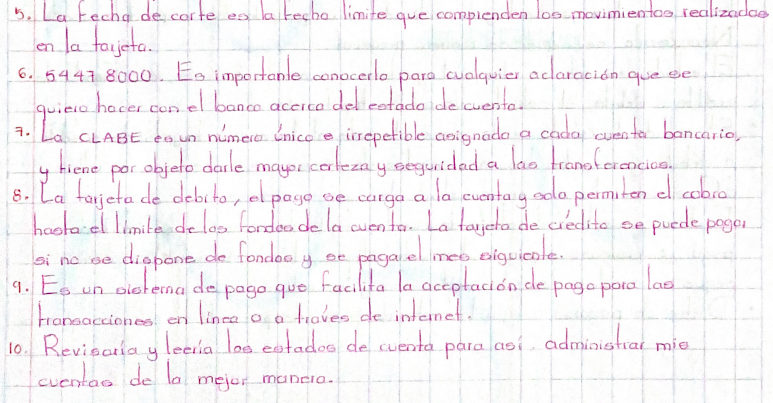 5. La fecha de corte es la fecha límite que comprenden los movimientos realizados
en la tarjeta.
6. 5447 8000. Es importante conocerlo para cualquier aclaración que se
quiera hacer con el banco acerca del estado de cuenta.
7. La CLABE es un número único e irrepetible asignado a cada cuenta bancaria,
y tiene por objeto darle mayor certeza y seguridad a las transferencias.
8. La tarjeta de debito, el pago se carga a la cuenta y solo permiten el cobro
hasta el límite de los fondos de la cuenta. La tarjeta de crédito se puede pagar
si no se dispone de fondos y se paga el mes siguiente.
9. Es un sistema de pago que facilita la aceptación de pago para las
transacciones en línea o a través de internet.
10. Revisaría y leería los estados de cuenta para así administrar mis
cuentas de la mejor manera.